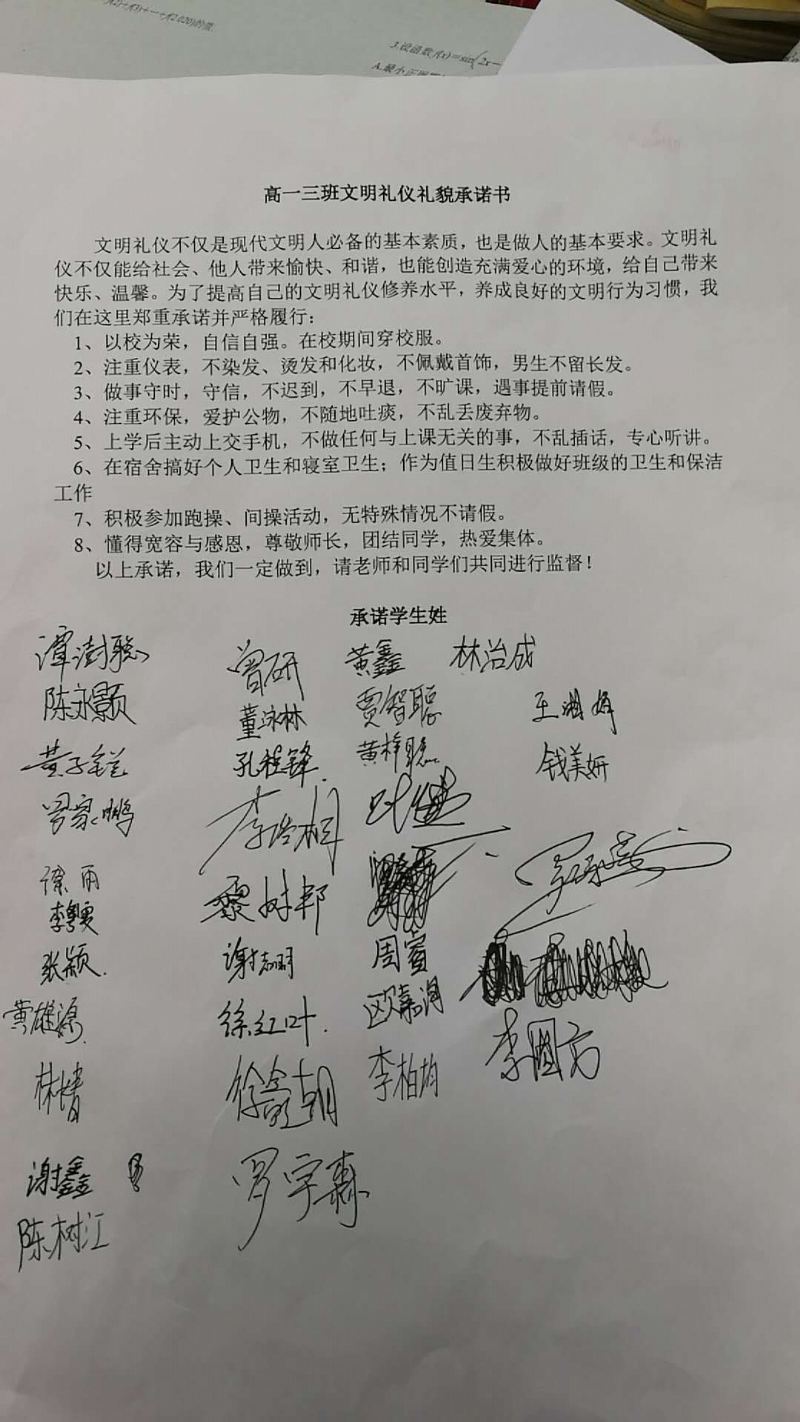 3.设函数f(x)=sin(2x-
高一三班文明礼仪礼貌承诺书
文明礼仪不仅是现代文明人必备的基本素质，也是做人的基本要求。文明礼
仪不仅能给社会、他人带来愉快、和谐，也能创造充满爱心的环境，给自己带来
快乐、温馨。为了提高自己的文明礼仪修养水平，养成良好的文明行为习惯，我
们在这里郑重承诺并严格履行：
1、以校为荣，自信自强。在校期间穿校服。
2、注重仪表，不染发、烫发和化妆，不佩戴首饰，男生不留长发。
3、做事守时，守信，不迟到，不早退，不旷课，遇事提前请假。
4、注重环保，爱护公物，不随地吐痰，不乱丢废弃物。
5、上学后主动上交手机，不做任何与上课无关的事，不乱插话，专心听讲。
6、在宿舍搞好个人卫生和寝室卫生；作为值日生积极做好班级的卫生和保洁
工作
7、积极参加跑操、间操活动，无特殊情况不请假。
8、懂得宽容与感恩，尊敬师长，团结同学，热爱集体。
以上承诺，我们一定做到，请老师和同学们共同进行监督！
承诺学生姓
谭澍聪 曾研 黄鑫 林治成
陈永颢 董泳林 贾智聪
孔程锋 黄梓聪 钱美妍
罗家鹏 李浩桐
徐雨 黎树邦
张颖 谢志明 周宾
黄雄源 徐红叶 欧嘉润
林婧 李柏均 李国方
谢鑫 罗宇森
陈树江